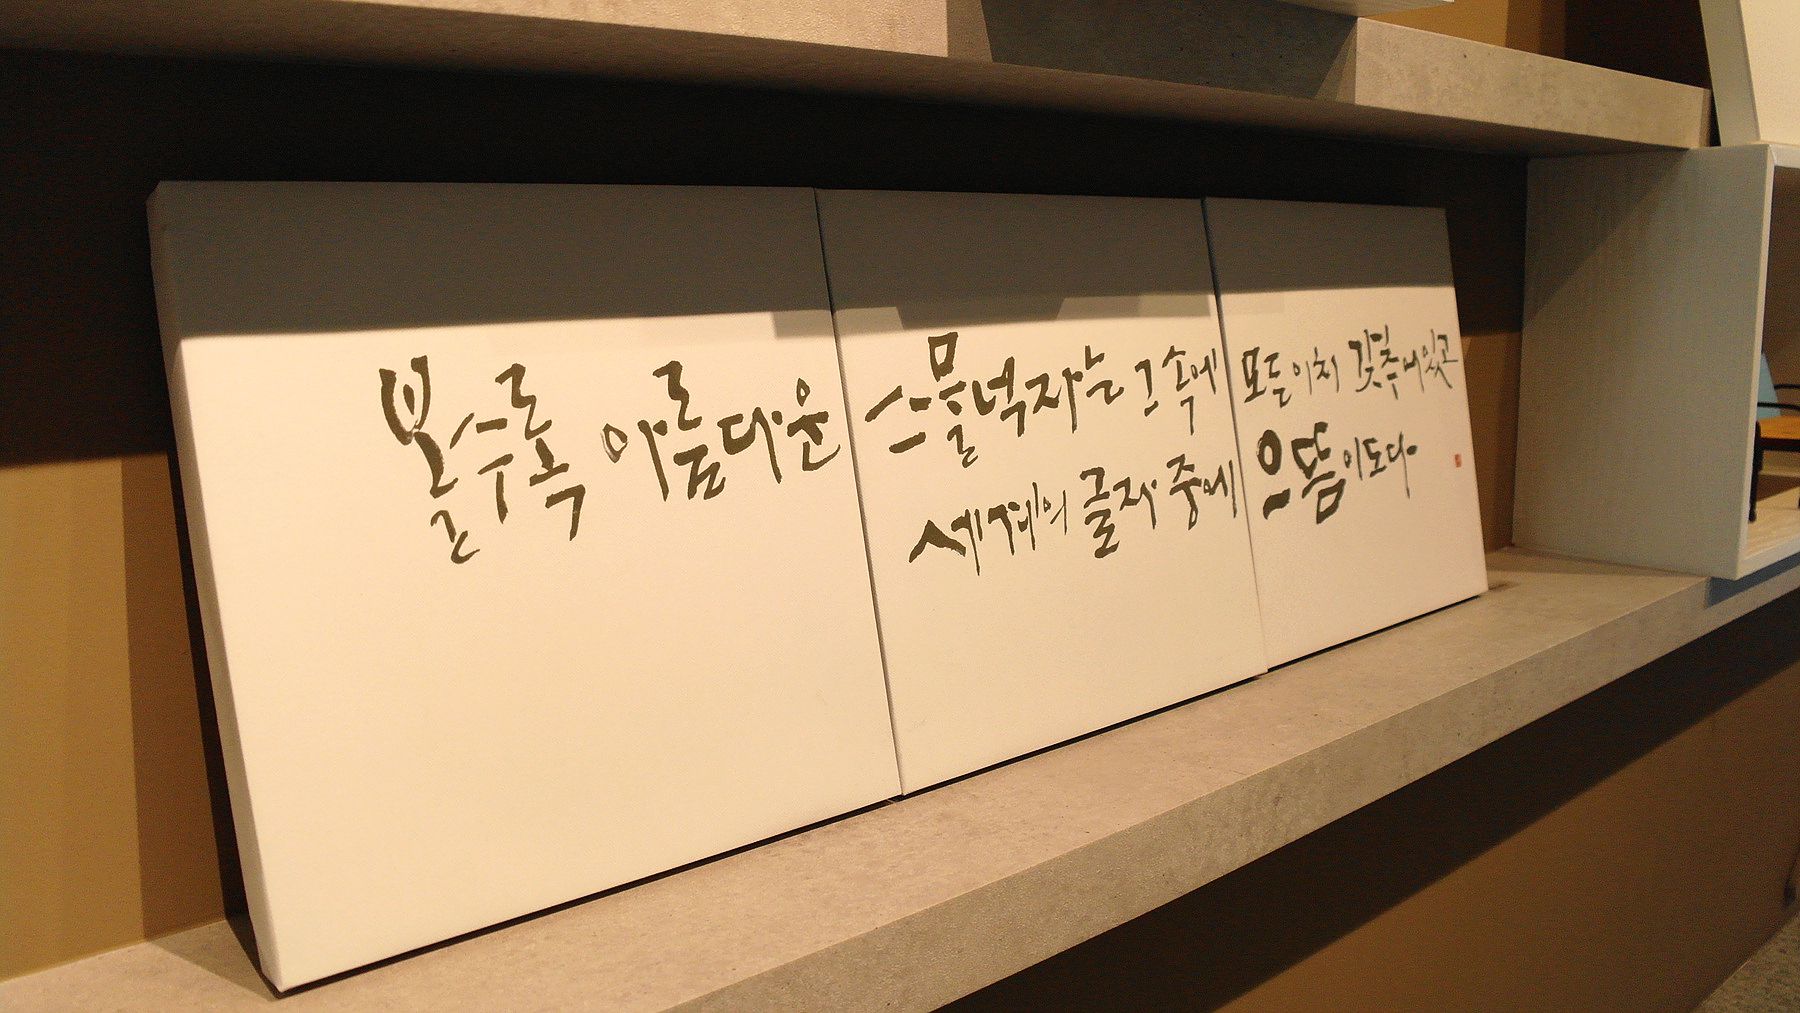 볼수록 아름다운 스물넉자는 그 속에 모든 이치 갖추어 있고
세계의 글자 중에 으뜸이도다